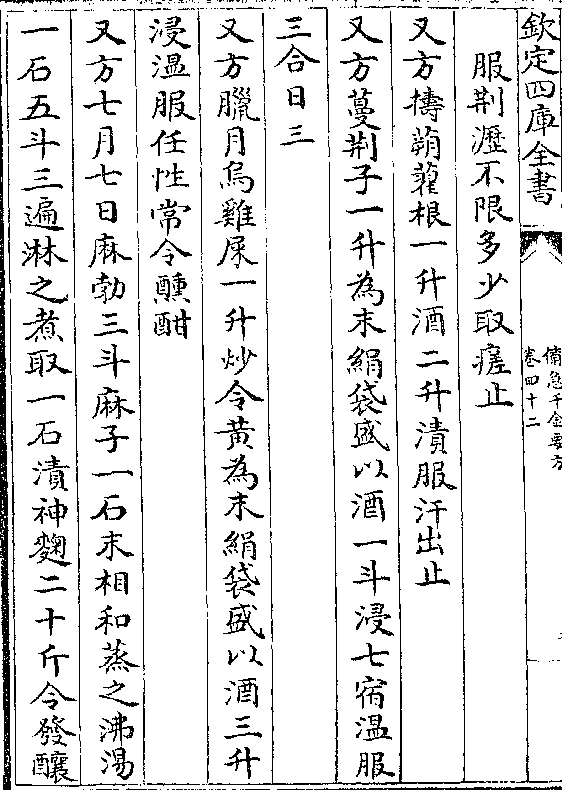 欽定四庫全書
備急千金要方
卷四十二
服荆瀝不限多少取瘥止
又方擣蒴藋根一升酒二升漬服汗出止
又方蔓荆子一升為末絹袋盛以酒一斗浸七宿溫服
三合日三
又方臘月烏雞屎一升炒令黄為末絹袋盛以酒三升
浸溫服任性常令醺酣
又方七月七日麻勃三斗麻子一石末相和蒸之沸湯
一石五斗三遍淋之煮取一石漬神麴二十斤令發釀